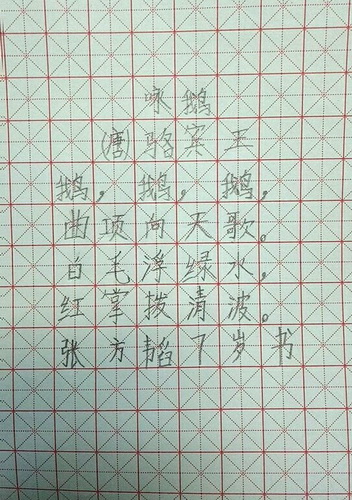 咏鹅
(唐)骆宾王
鹅,鹅,鹅,
曲项向天歌。
白毛浮绿水,
红掌拨清波。
张方韬7岁书